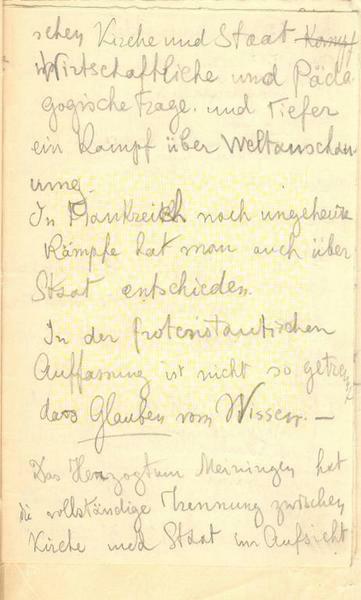 schen Kirche und Staat Kampf
Wirtschaftliche und Päda
gogische Frage. und Tiefer
ein Kampf über Weltanschau
ung.
In Frankreich nach ungeheure
Kämpfe hat man auch über
Staat entschieden.
In der protenstantischen
Auffassung ist nicht so getrennt
dass Glauben vom Wissen. —
Das Herzogtum Meiningen hat
die vollständige Trennung zwischen
Kirche und Staat in Aufsicht